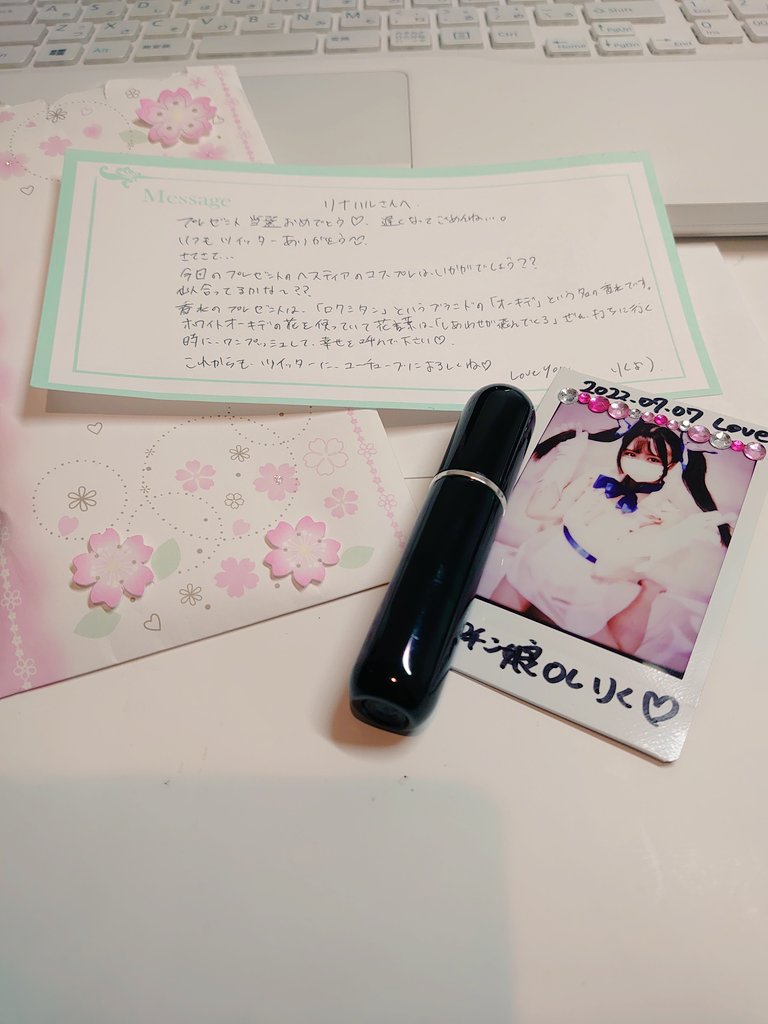 Message
リナハルさんへ
プレゼント当選おめでとう♡ 遅くなってごめんね…。
いつもツイッターありがとう♡
さてさて…
今回のプレゼントのヘスティアのコスプレは、いかがでしょう??
似合ってるかな〜??
香水のプレゼントは、「ロクシタン」というブランドの「オーキデ」という名の香水です。
ホワイトオーキデの花を使っていて花言葉は、「しあわせが飛んでくる」ぜひ、打ちに行く
時に、ワンプッシュして、幸せを呼んで下さい♡
これからも、ツイッターに、ユーチューブによろしくね♡
Love りくより
2022.07.07 Love
チン娘OLりく♡
Alt
Ctrl
Home
PgUp
PgDn
End